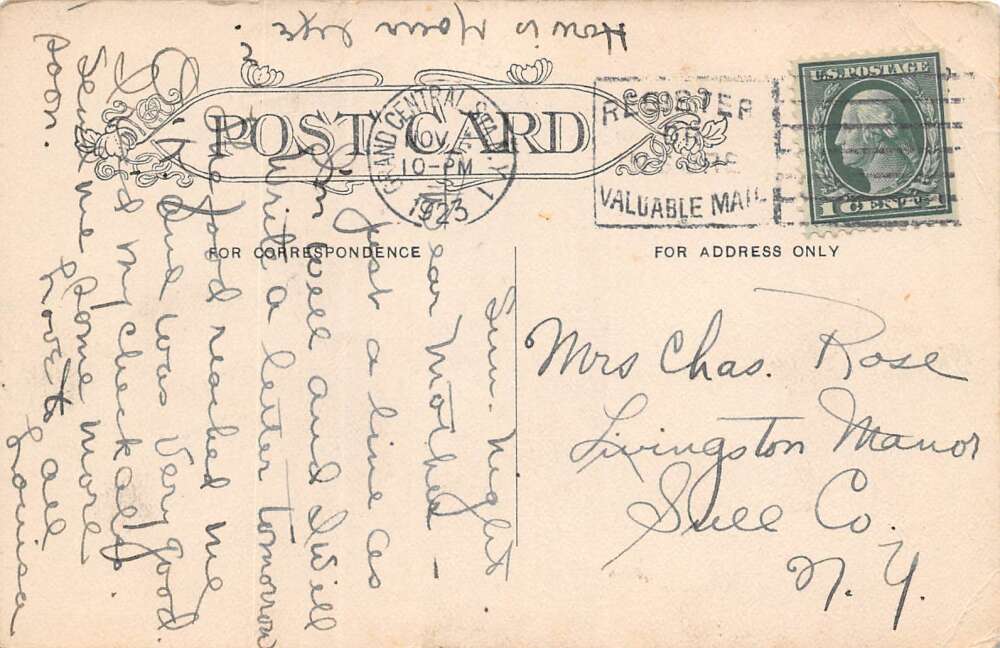 POST CARD
GRAND CENTRAL STA. N.Y. 1
NOV
10-PM
1923
REGISTER
VALUABLE MAIL
U.S. POSTAGE
1 CENT 1
FOR CORRESPONDENCE
FOR ADDRESS ONLY
Sun. Night
Dear Mother -
Just a line as
I'm well and I will
write a letter tomorrow
The food reached me
O.K. and was very good.
I got my check also
Send me some more
soon.
Love to all
Louisa
How is your eye?
Mrs Chas. Rose
Livingston Manor
Sull Co.
N.Y.